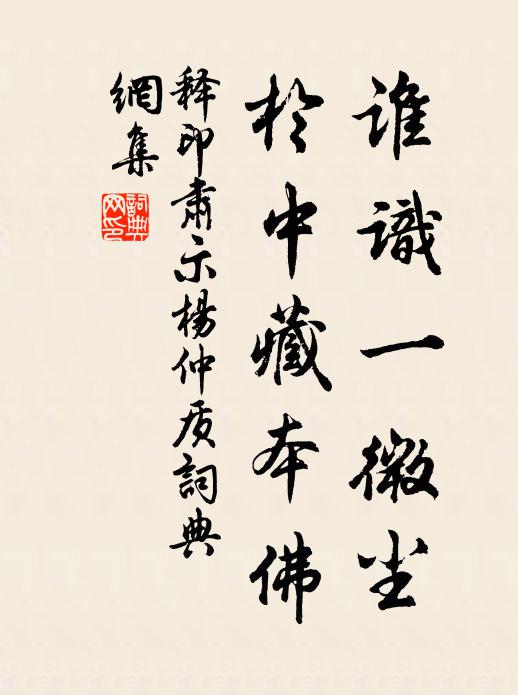 谁識一微尘
於中藏本佛
释印肅示楊仲质詞典
網集
詞典网印